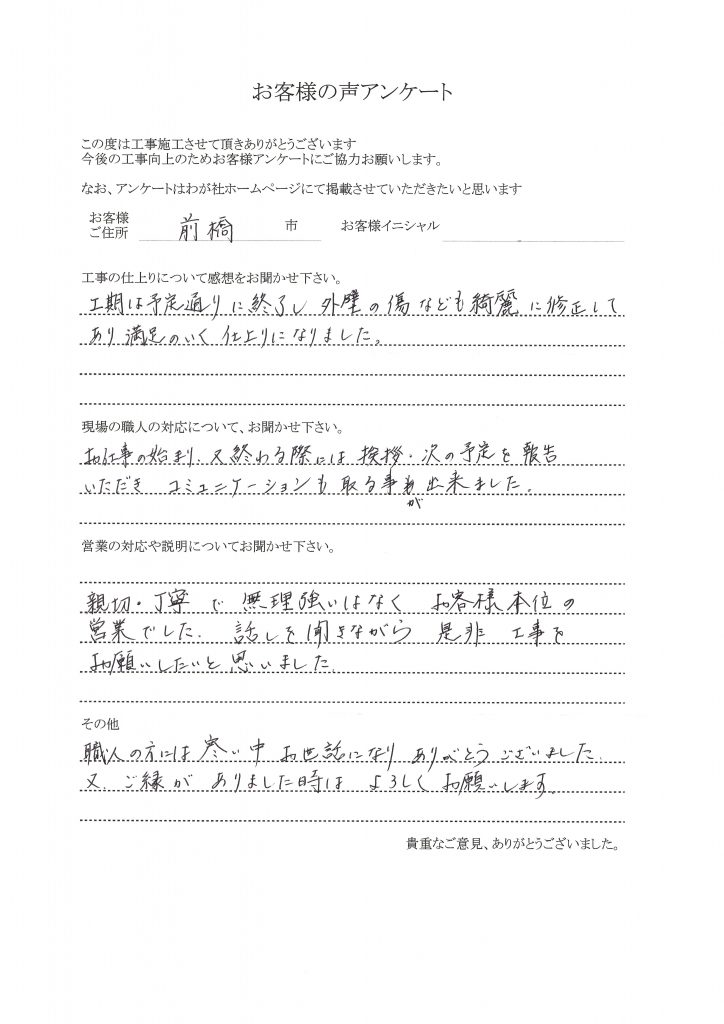 お客様の声アンケート
この度は工事施工させて頂きありがとうございます
今後の工事向上のためお客様アンケートにご協力お願いします。
なお、アンケートはわが社ホームページにて掲載させていただきたいと思います
お客様
ご住所 前橋 市 お客様イニシャル
工事の仕上りについて感想をお聞かせ下さい。
工期は予定通りに終了し 外壁の傷なども綺麗に修正して
あり満足のいく仕上りになりました。
現場の職人の対応について、お聞かせ下さい。
お仕事の始まり、又終わる際には挨拶・次の予定を報告
いただき コミュニケーションも取る事が出来ました。
営業の対応や説明についてお聞かせ下さい。
親切・丁寧で無理強いはなく お客様本位の
営業でした。話しを聞きながら 是非 工事を
お願いしたいと思いました。
その他
職人の方には寒い中 お世話になり ありがとうございました。
又、ご縁が ありました時は よろしく お願いします。
貴重なご意見、ありがとうございました。